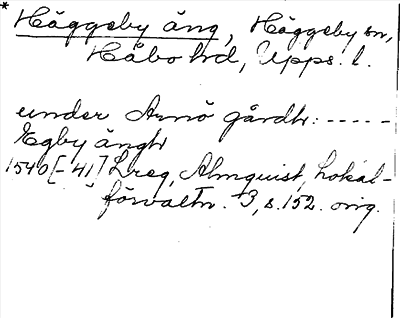 * Häggeby äng, Häggeby sn,
Håbo hd, Upps. l.
under Arnö gårdh: -----
Egby ängh
1540[-41] Lreg, Almquist, Lokal-
förvaltn. 3, s. 152. orig.